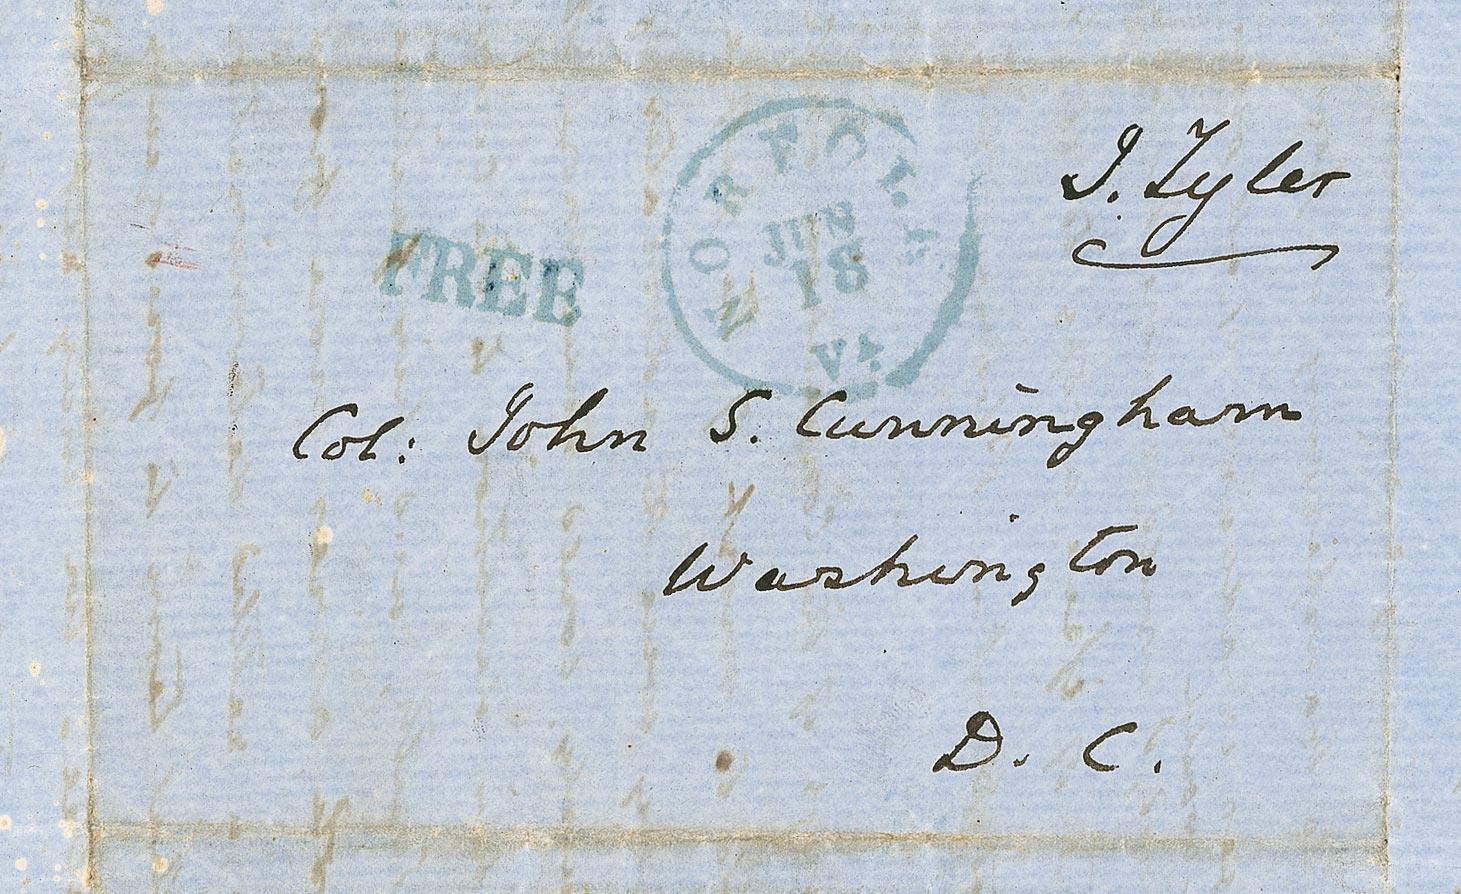 J. Tyler
NORFOLK
JUN
18
Va
FREE
Col: John S. Cunningham
Washington
D. C.